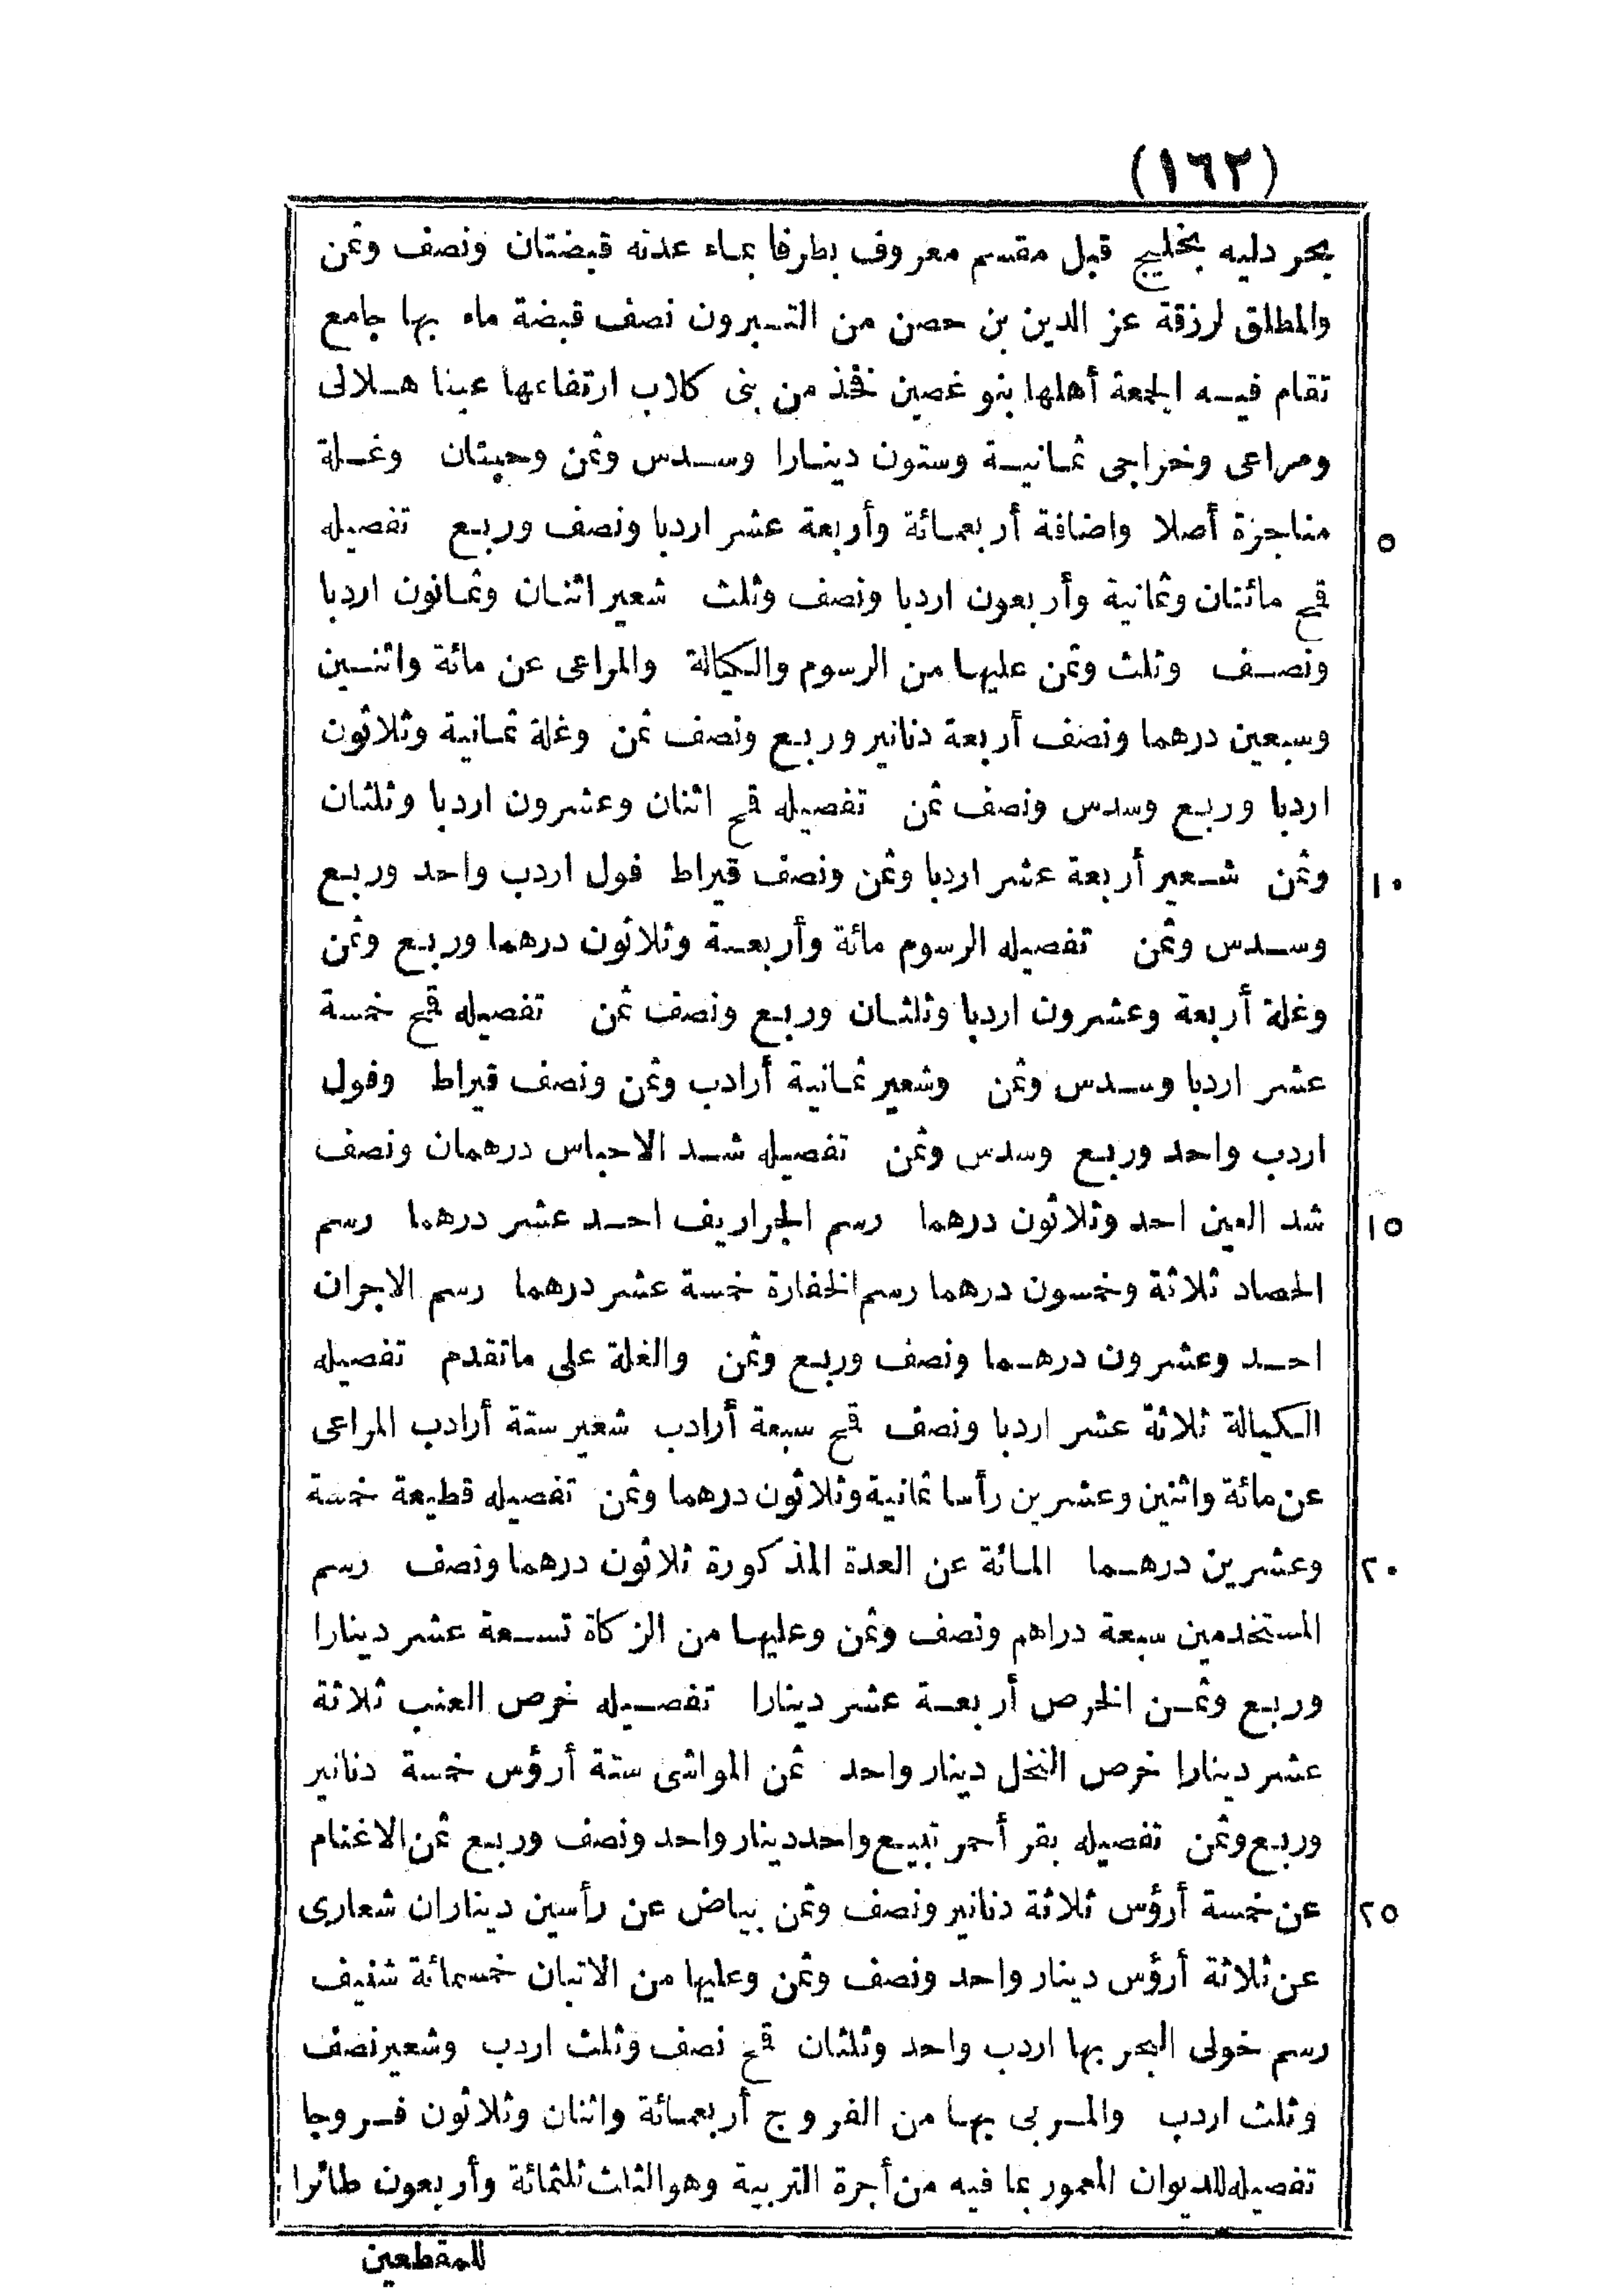 (١٦٢)
بحر دليه بخليج قبل مقسم معروف بطرفا بماء عدته قبضتان ونصف وثمن
والمطلق لرزقة عز الدين بن حصن من التبرون نصف قبضة ماء بها جامع
تقام فيه الجمعة أهلها بنو غصين فخذ من بنى كلاب ارتفاعها عينا هلالى
ومراعى وخراجى ثمانية وستون دينارا وسدس وثمن وحبتان وغلة
٥ مناجزة أصلا واضافة أربعمائة وأربعة عشر اردبا ونصف وربع تفصيله
قمح مائتان وثمانية وأربعون اردبا ونصف وثلث شعير اثنان وثمانون اردبا
ونصف وثلث وثمن عليها من الرسوم والكيالة والمراعى عن مائة واثنين
وسبعين درهما ونصف أربعة دنانير وربع ونصف ثمن وغلة ثمانية وثلاثون
اردبا وربع وسدس ونصف ثمن تفصيله قمح اثنان وعشرون اردبا وثلثان
١٠ وثمن شعير أربعة عشر اردبا وثمن ونصف قيراط فول اردب واحد وربع
وسدس وثمن تفصيله الرسوم مائة وأربعة وثلاثون درهما وربع وثمن
وغلة أربعة وعشرون اردبا وثلثان وربع ونصف ثمن تفصيله قمح خمسة
عشر اردبا وسدس وثمن وشعير ثمانية أرادب وثمن ونصف قيراط وفول
اردب واحد وربع وسدس وثمن تفصيله شد الاحباس درهمان ونصف
١٥ شد العين احد وثلاثون درهما رسم الجراريف احد عشر درهما رسم
الحصاد ثلاثة وخمسون درهما رسم الخفارة خمسة عشر درهما رسم الاجران
احد وعشرون درهما ونصف وربع وثمن والغلة على ماتقدم تفصيله
الكيالة ثلاثة عشر اردبا ونصف قمح سبعة أرادب شعير ستة أرادب المراعى
عن مائة واثنين وعشرين رأسا ثمانية وثلاثون درهما وثمن تفصيله قطيعة خمسة
٢٠ وعشرين درهما المائة عن العدة المذكورة ثلاثون درهما ونصف رسم
المستخدمين سبعة دراهم ونصف وثمن وعليها من الزكاة تسعة عشر دينارا
وربع وثمن الخرص أربعة عشر دينارا تفصيله خرص العنب ثلاثة
عشر دينارا خرص النخل دينار واحد ثمن المواشى ستة أرؤس خمسة دنانير
وربع وثمن تفصيله بقر أحمر تبيع واحد دينار واحد ونصف وربع ثمن الاغنام
٢٥ عن خمسة أرؤس ثلاثة دنانير ونصف وثمن بياض عن رأسين ديناران شعارى
عن ثلاثة أرؤس دينار واحد ونصف وثمن وعليها من الاتبان خمسمائة شنيف
رسم خولى البحر بها اردب واحد وثلثان قمح نصف وثلث اردب وشعير نصف
وثلث اردب والمربى بها من الفروج أربعمائة واثنان وثلاثون فروجا
تفصيله للديوان المعمور بما فيه من أجرة التربية وهو الثلث ثلثمائة وأربعون طائرا
للمقطعين